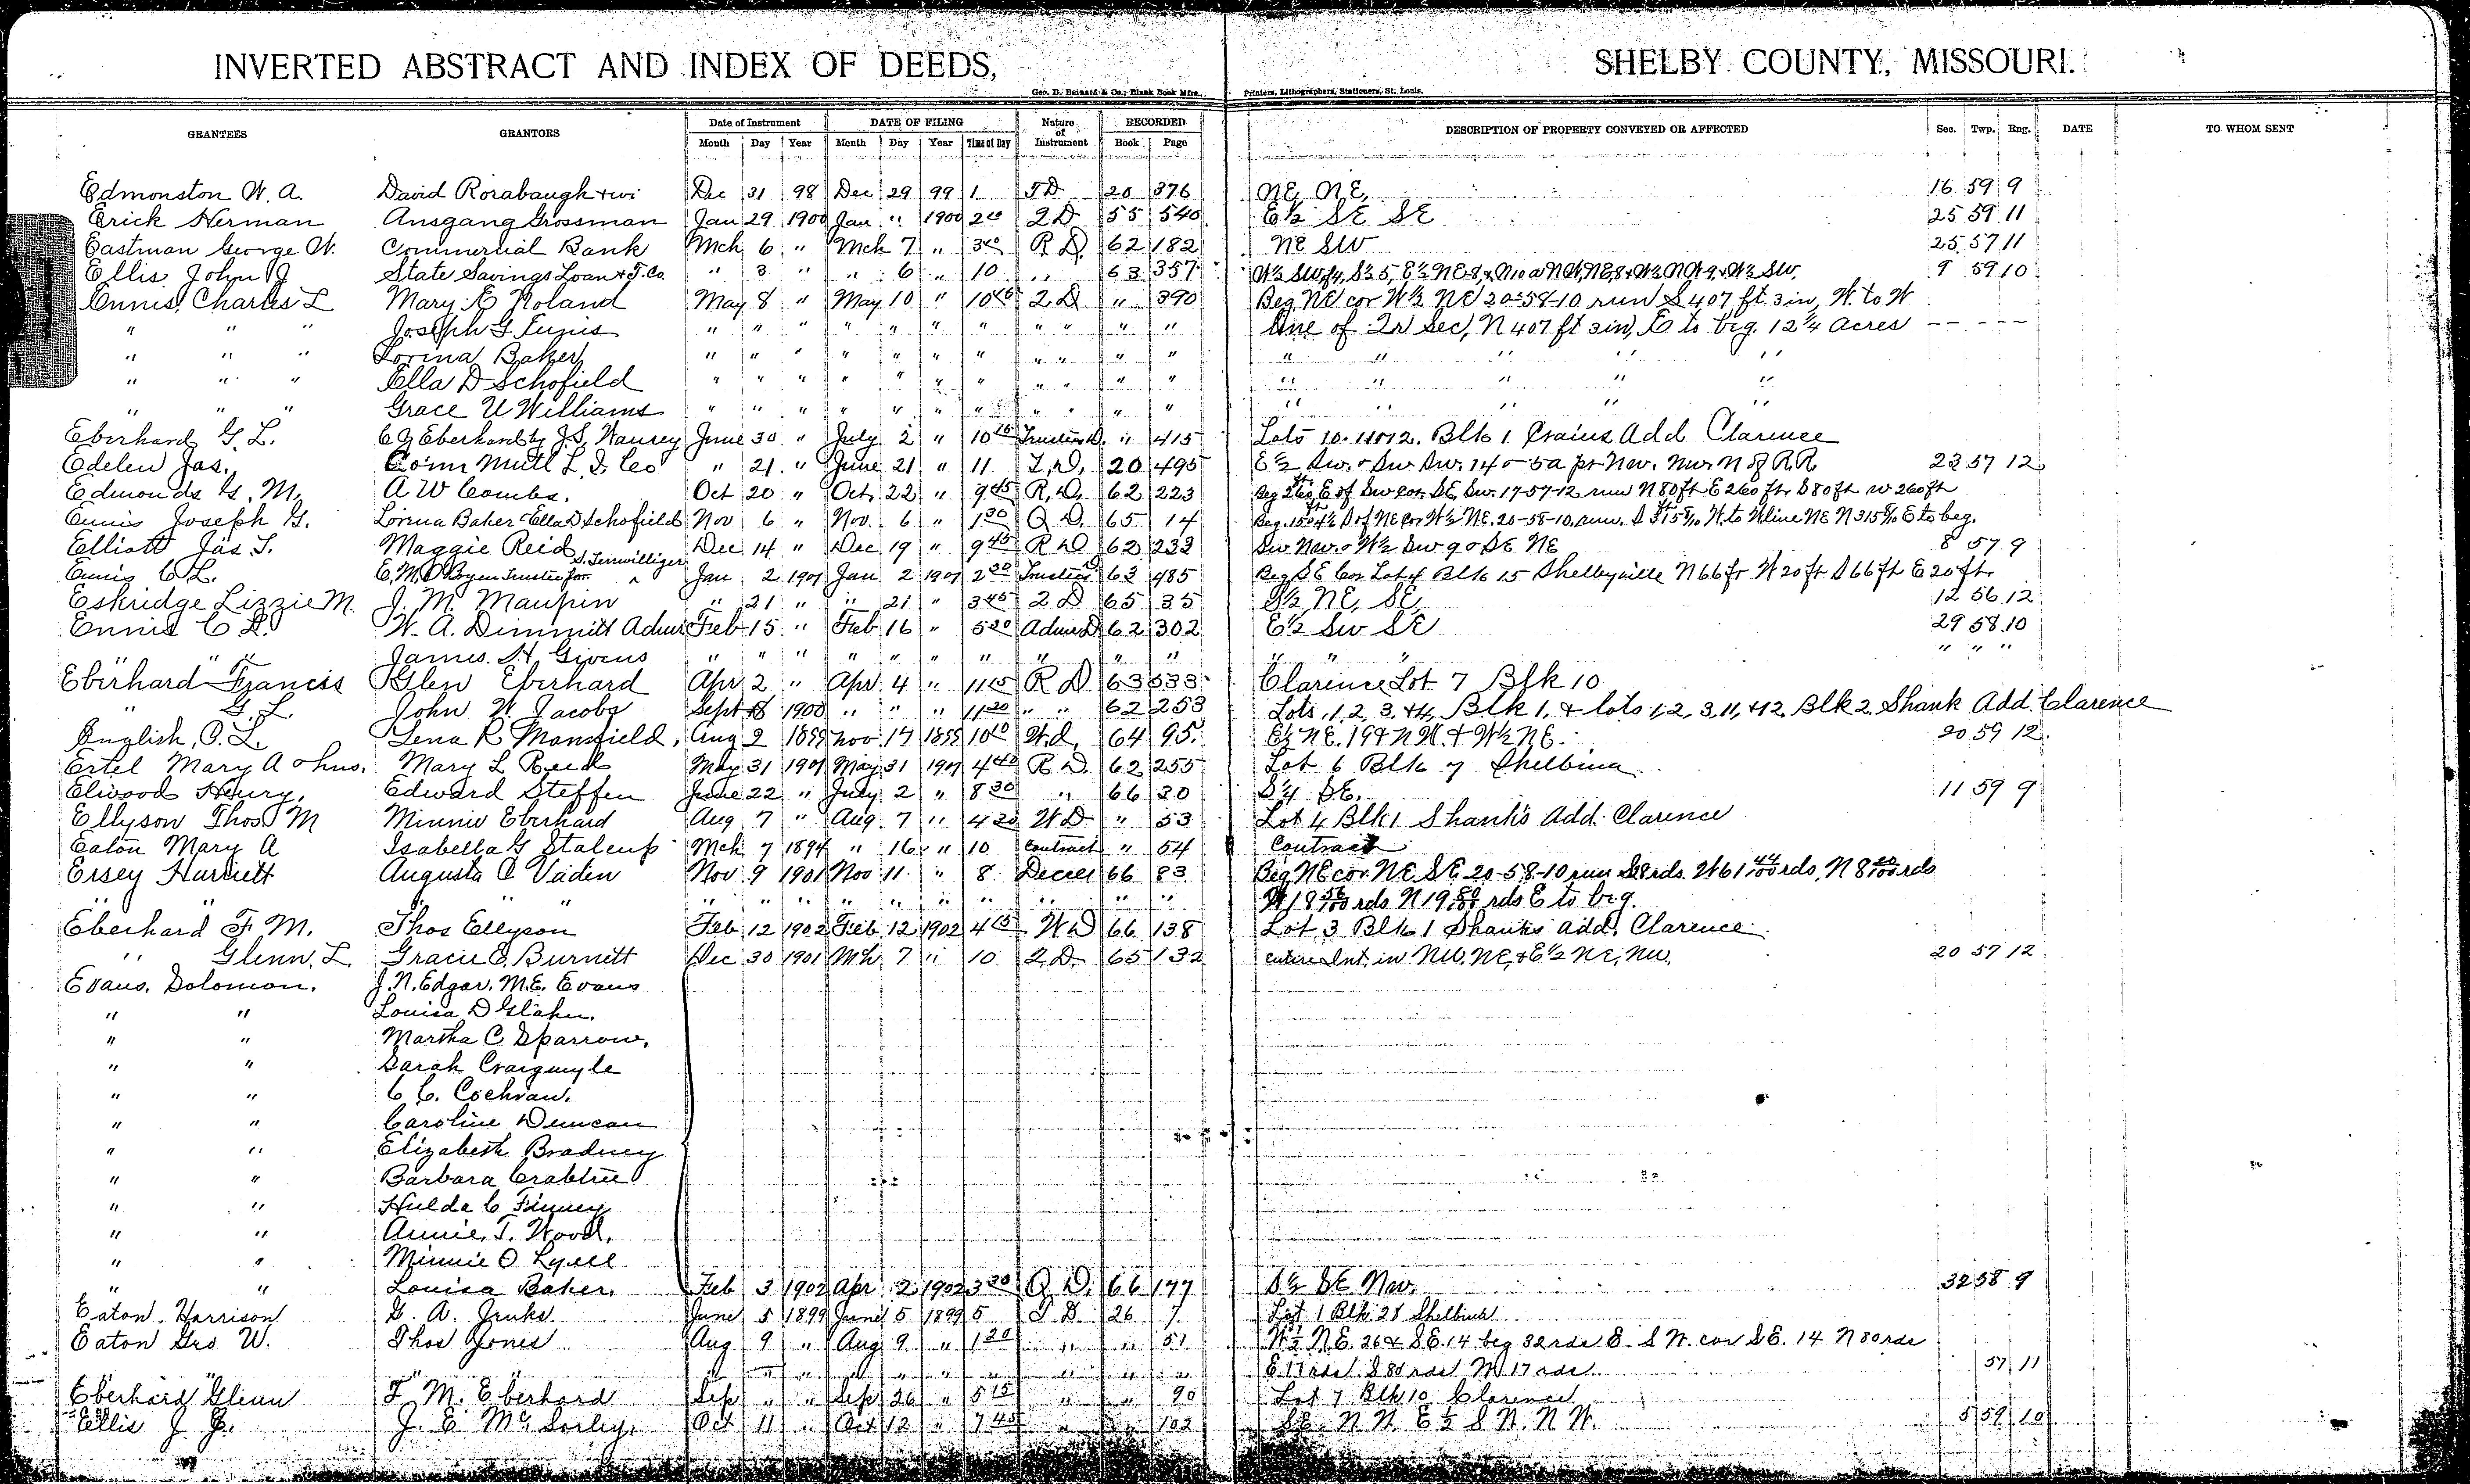 INVERTED ABSTRACT AND INDEX OF DEEDS, SHELBY COUNTY, MISSOURI.
Geo. D. Barnard & Co., Blank Book Mfrs., Printers, Lithographers, Stationers, St. Louis.
GRANTEES GRANTORS Date of Instrument DATE OF FILING Nature of Instrument RECORDED DESCRIPTION OF PROPERTY CONVEYED OR AFFECTED Sec. Twp. Rng. DATE TO WHOM SENT
Month Day Year Month Day Year Time of Day Book Page
Edmonston W. A. David Rorabaugh + wi Dec 31 98 Dec 29 99 1 TD 20 376 NE, NE, 16 59 9
Erick Herman Ansgang Grossman Jan 29 1900 Jan " 1900 2 2 D 55 540 E½ SE SE 25 59 11
Eastman George W. Commercial Bank Mch 6 " Mch 7 " 3 R D. 62 182 NE SW 25 57 11
Ellis John J State Savings Loan & T. Co. " 3 " " 6 " 10 " 63 357 9 59 10
Ennis, Charles L Mary E Noland May 8 " May 10 " 10 2 D " 390 Beg NE cor W½ NE 20-58-10 run S 407 ft. 3 in, W. to W
" " " Joseph G Ennis " " " " " " " " " " " line of Qr Sec, N 407 ft 3 in, E to beg. 12¼ Acres -- - ---
" " " Lorina Baker " " " " " " " " " " " " " " " "
" " " Ella D Schofield " " " " " " " " " " " " " " " "
" " " Grace U Williams " " " " " " " " " " " " " " " "
Eberhard G. L. C G Eberhard by J. S. Wausey June 30 " July 2 " 10 Trustees D. " 415 Lots 10-11 & 12. Blk 1 Crains Add Clarence
Edelen Jas. Conn Mutl L. I. Co " 21 " June 21 " 11 20 495 23 57 12
Edmonds G. M. A W Combs. Oct 20 " Oct. 22 " 9 45 R. D. 62 223 Beg 260 ft E of Sw cor. SE, Sw. 17-57-12 run N 80 ft E 260 ft, S 80 ft w 260 ft
Ennis Joseph G. Lorina Baker & Ella D Schofield Nov 6 " Nov. 6 " 1 30 Q D. 65 14 N E to beg.
Elliott Jas T. Maggie Reid Dec 14 " Dec 19 " 9 45 R D 62 232 Sw. Nw. & W½ Sw 9 & SE NE 8 57 9
Ennis C L. S. Terrwilliger Jan 2 1901 Jan 2 1901 2 30 Trustees D 63 485 Beg SE Cor Lot 4 Blk 15 Shelbyville N 66 ft W 20 ft S 66 ft E 20 ft.
Eskridge Lizzie M. J. M. Maupin " 21 " " 21 " 3 45 2 D 65 35 S½ NE, SE, 12 56 12
Ennis C L. W. A. Dimmitt Admr Feb 15 " Feb 16 " 5 30 Admrs D 62 302 E½ Sw SE 29 58 10
" " " James. H Givens " " " " " " " " " " " " " " " "
Eberhard Francis Glen Eberhard Apr 2 " Apr 4 " 11 15 R D 63 533 Clarence Lot 7 Blk 10
" G. L John W Jacobs Sept 18 1900 " " " 11 20 " " 62 253 Lots, 1, 2, 3, & 4, Blk 1, & lots 1, 2, 3, 11, & 12 Blk 2 Shank Add. Clarence
English, O. L. Lena R Mansfield, Aug 2 1899 Nov 17 1899 10 10 W. d, 64 95 E½ NE. 19 & N W. & W½ NE. 20 59 12.
Ertel Mary A & hus. Mary L Reed May 31 1901 May 31 1901 4 40 R D. 62 255 Lot 6 Blk 7 Shelbina
Elwood Henry. Edward Steffen June 22 " July 2 " 8 30 " 66 30 SE. 11 59 9
Ellyson Thos M Minnie Eberhard Aug 7 " Aug 7 " 4 20 W D " 53 Lot 4 Blk 1 Shank's Add. Clarence
Eaton Mary A Isabella G Stalcup Mch 7 1894 " 16 " 10 Contract " 54 Contract
Ersey Harriett Augusta C Vaden Nov 9 1901 Nov 11 " 8 Decree 66 83 Beg NE cor NE SE 20-58-10 run S 28 rds. W 61 44/100 rds, N 8 20/100 rds
" " " " " " " " " " " " " " W 18 56/100 rds N 19 80/100 rds E to beg.
Eberhard F M. Thos Ellyson Feb 12 1902 Feb 12 1902 4 15 W D 66 138 Lot 3 Blk 1 Shanks add, Clarence
" Glenn, L. Gracie E. Burnett Dec 30 1901 Mch 7 " 10 2. D. 65 132 entire Int. in NW. NE, & E½ NE, NW. 20 57 12
Evans, Solomon. J. N. Edgar, M. E. Evans
" " Louisa D Glahn.
" " Martha C Sparrow,
" " Sarah Craigmyle
" " C C. Cochran.
" " Caroline Duncan
" " Elizabeth Bradney
" " Barbara Crabtree
" " Hulda C Finney
" " Annie. T. Wood,
" " Minnie O Lyell
" " Louisa Baker, Feb 3 1902 Apr 2 1902 3 30 Q D. 66 177 S½ SE Nw. 32 58 9
Eaton. Harrison G. A. Jenks June 5 1899 June 5 1899 5 T D. 26 7 Lot 1 Blk 28 Shelbina
Eaton Geo W. Thos Jones Aug 9 " Aug 9 " 1 20 " " 51 W½ NE. 26 & SE. 14 beg 32 rds E. S W. cor SE. 14 N 80 rds
" " " " " " " " " " " " E 17 rds S 80 rds W 17 rds 57 11
Eberhard Glenn F M. Eberhard Sep " " Sep 26 " 5 15 " " 90 Lot 7 Blk 10 Clarence
Ellis J J. J. E Mc Sorley, Oct 11 " Oct 12 " 7 45 " " 102 SE. N W. E½ S W. N W. 5 59 10